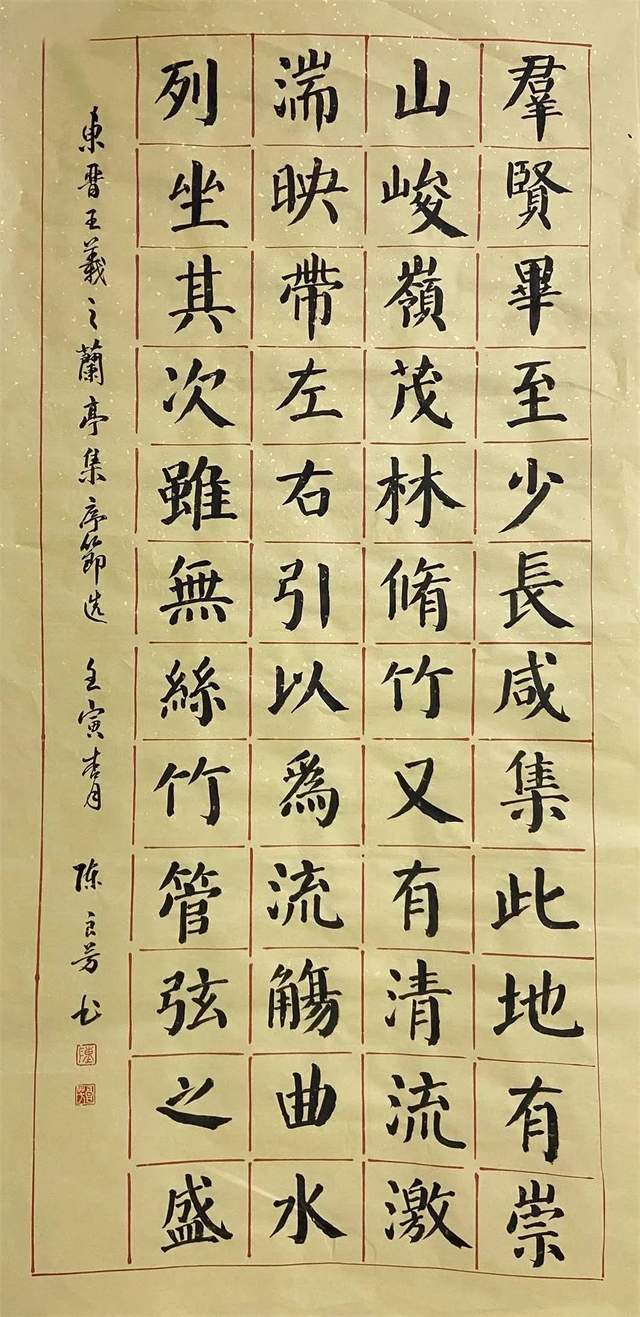 羣賢畢至少長咸集此地有崇
山峻嶺茂林脩竹又有清流激
湍映帶左右引以為流觴曲水
列坐其次雖無絲竹管弦之盛
東晉王羲之蘭亭集序節选 壬寅青月 陈良芳书